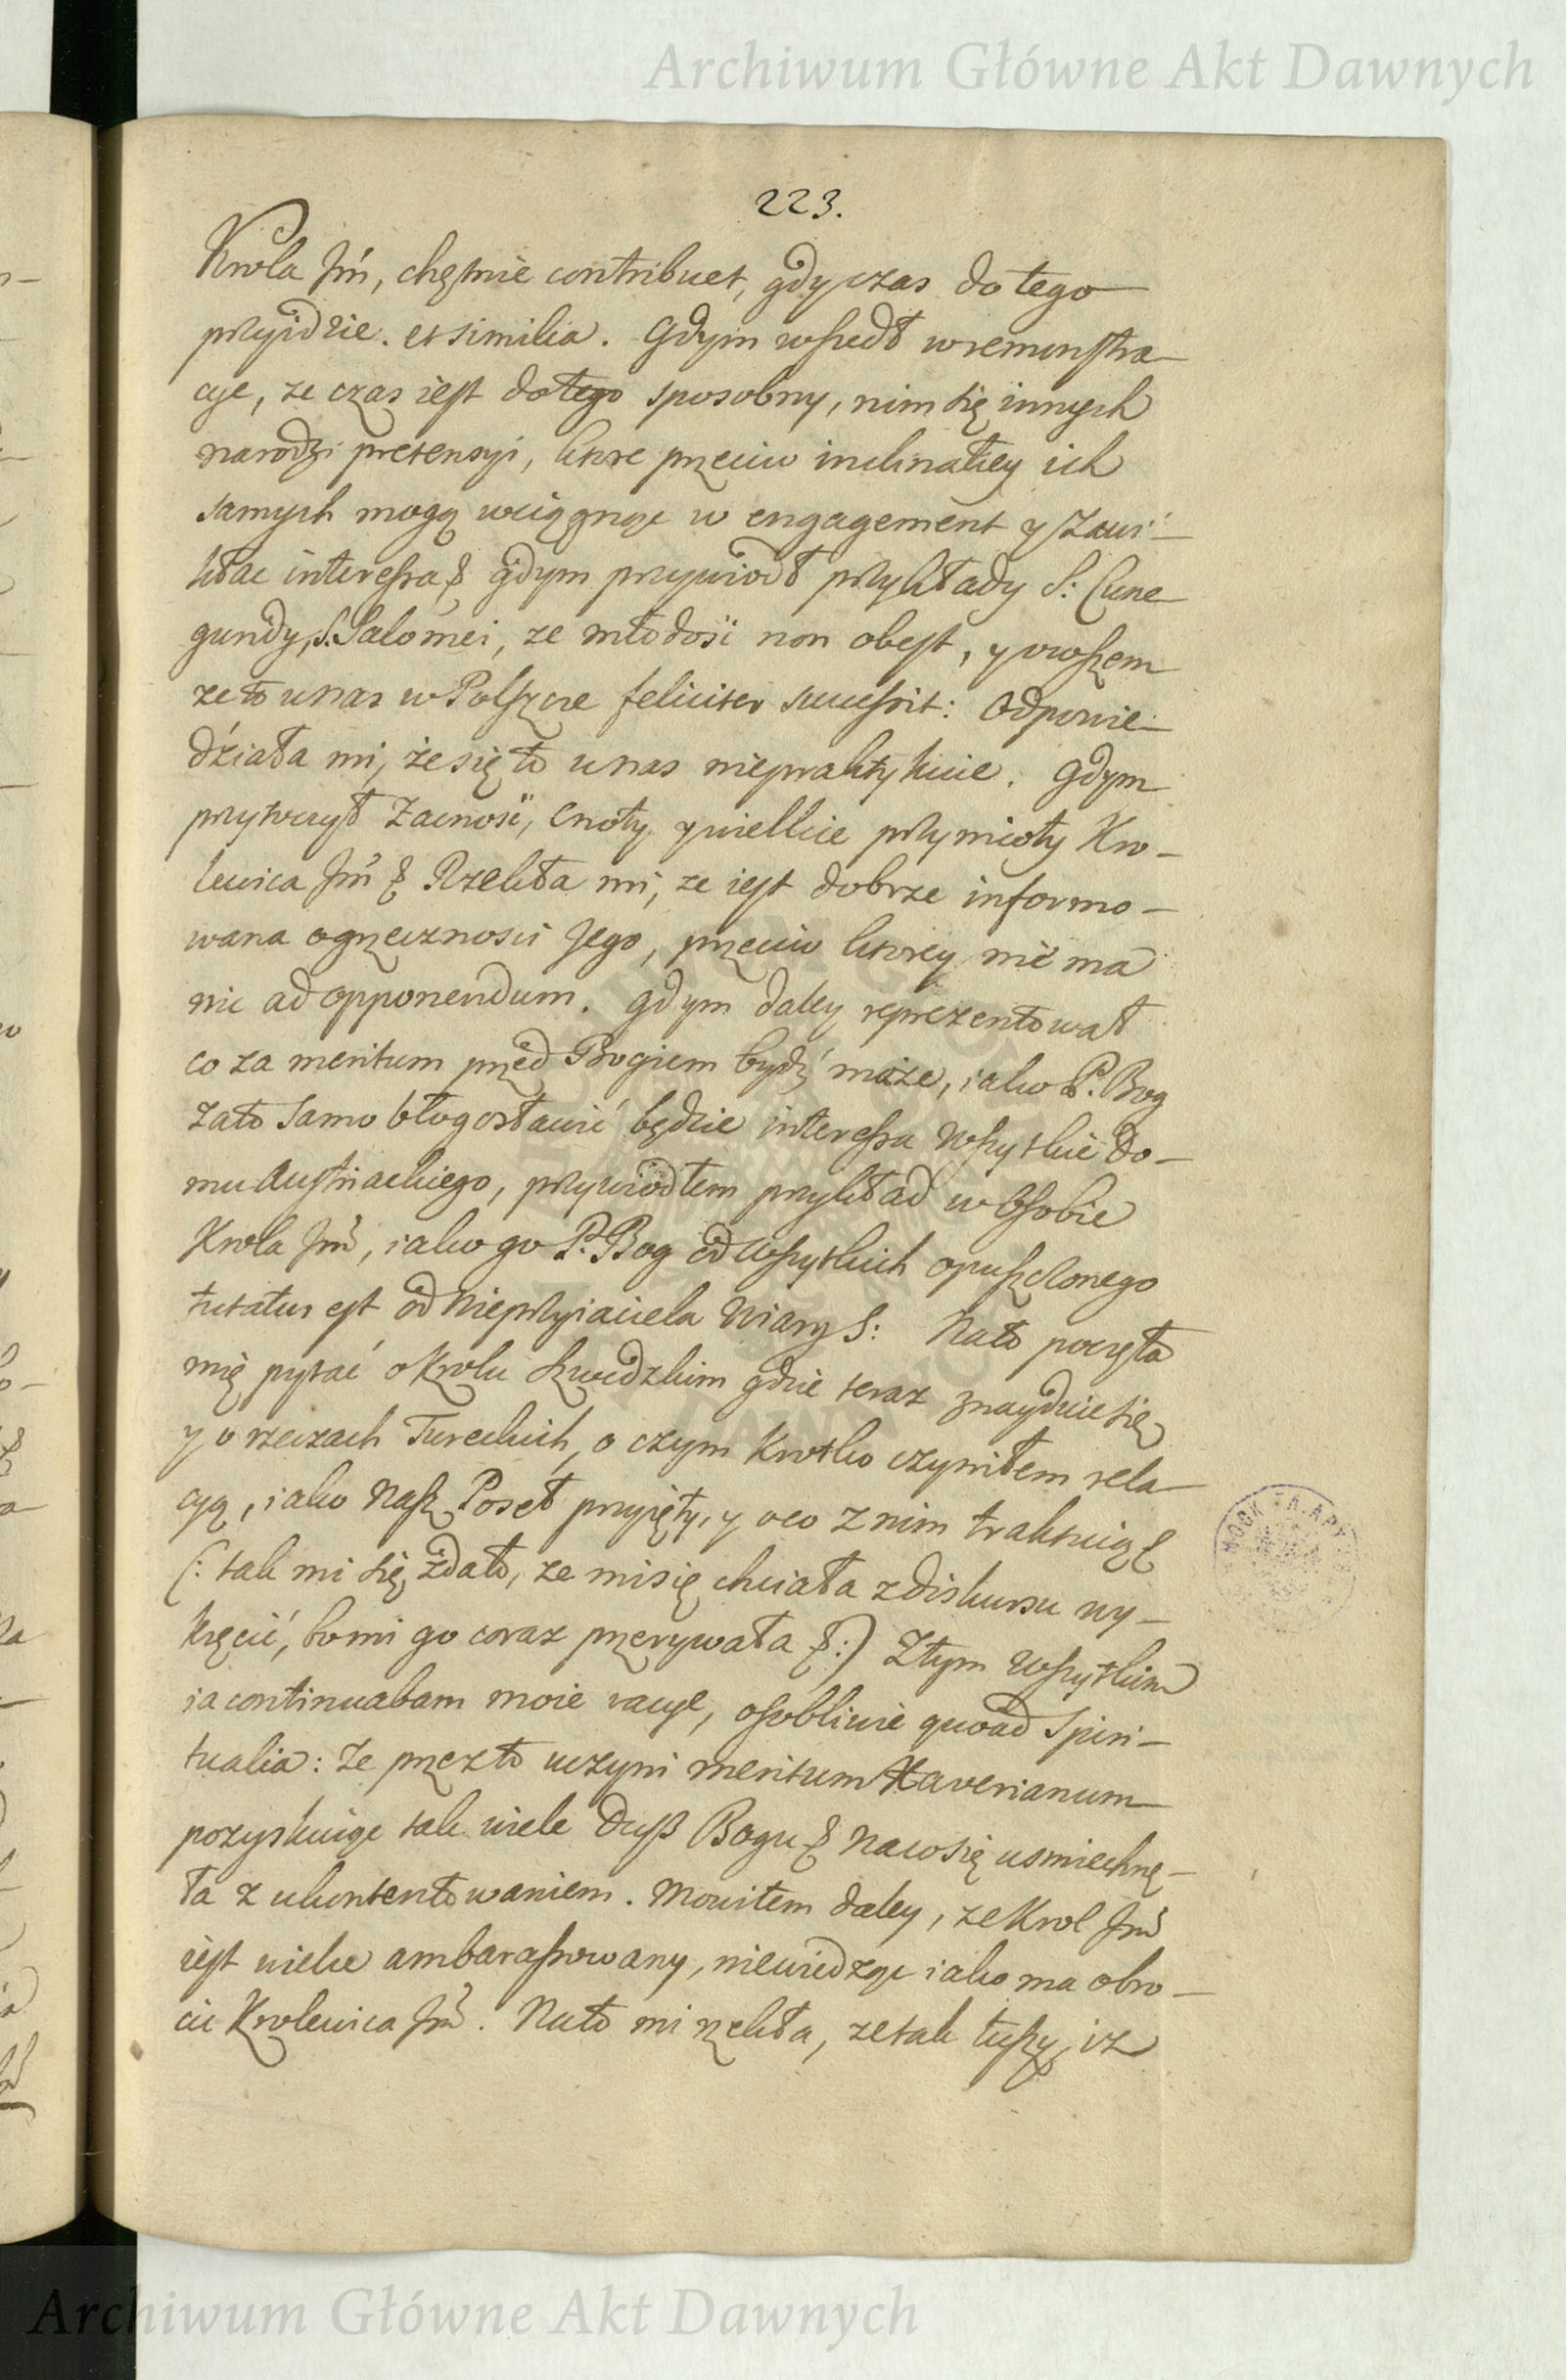 Archiwum Główne Akt Dawnych
223.
Krola Jm̃, chętnie contribuet, gdy czas do tego
przyidzie. et similia. Gdym wszedł w remonstra-
cye, ze czas iest do tego sposobny, nim się innych
narodzi pretensyi, ktore przeciw inclinatiey ich
samych mogą wciągnąc w engagement y zawi-
kłac interessa & gdym przywiodł przykłady S: Cune-
gundy, S. Salomei, ze młodość non obest, y owszem
ze to u nas w Polszcze feliciter successit: Odpowie-
działa mi, że się to u nas niepraktykuie. Gdym
przytoczył zacność, cnoty y wielkie przymioty Kro-
lewica Jm̃ & Rzekła mi, ze iest dobrze informo-
wana o grzeczności Jego, przeciw ktorey nie ma
nic ad opponendum. gdym daley reprezentował
co za meritum przed Bogiem bydź może, iako P. Bog
za to samo błogosławić będzie interessa wszytkie Do-
mu Austriackiego, przywiodłem przykład w Osobie
Krola Jm̃, iako go P. Bog od wszytkich opuszczonego
tutatus est od nieprzyiaciela Wiary S: Na to poczęła
mię pytać o Krolu Szwedzkim gdzie teraz znayduie się
y o rzeczach Tureckich, o czym krotko czyniłem rela-
cyą, iako Nasz Poseł przyięty, y o co z nim traktuią &
(: tak mi się zdało, ze mi się chciała z diskursu wy-
kręcić, bo mi go coraz przerywała &:) Z tym wszytkim
ia continuabam moie racye, osobliwie quoad Spiri-
tualia: Ze przez to uczyni meritum Xaverianum
pozyskuiąc tak wiele Dusz Bogu & Na co się usmiechnę-
ła z ukontentowaniem. Mowiłem daley, ze Krol Jm̃
iest wielce ambarassowany, niewiedząc iako ma obro-
cic Krolewica Jm̃. Na to mi rzekła, ze tak tuszy, iz
Archiwum Główne Akt Dawnych